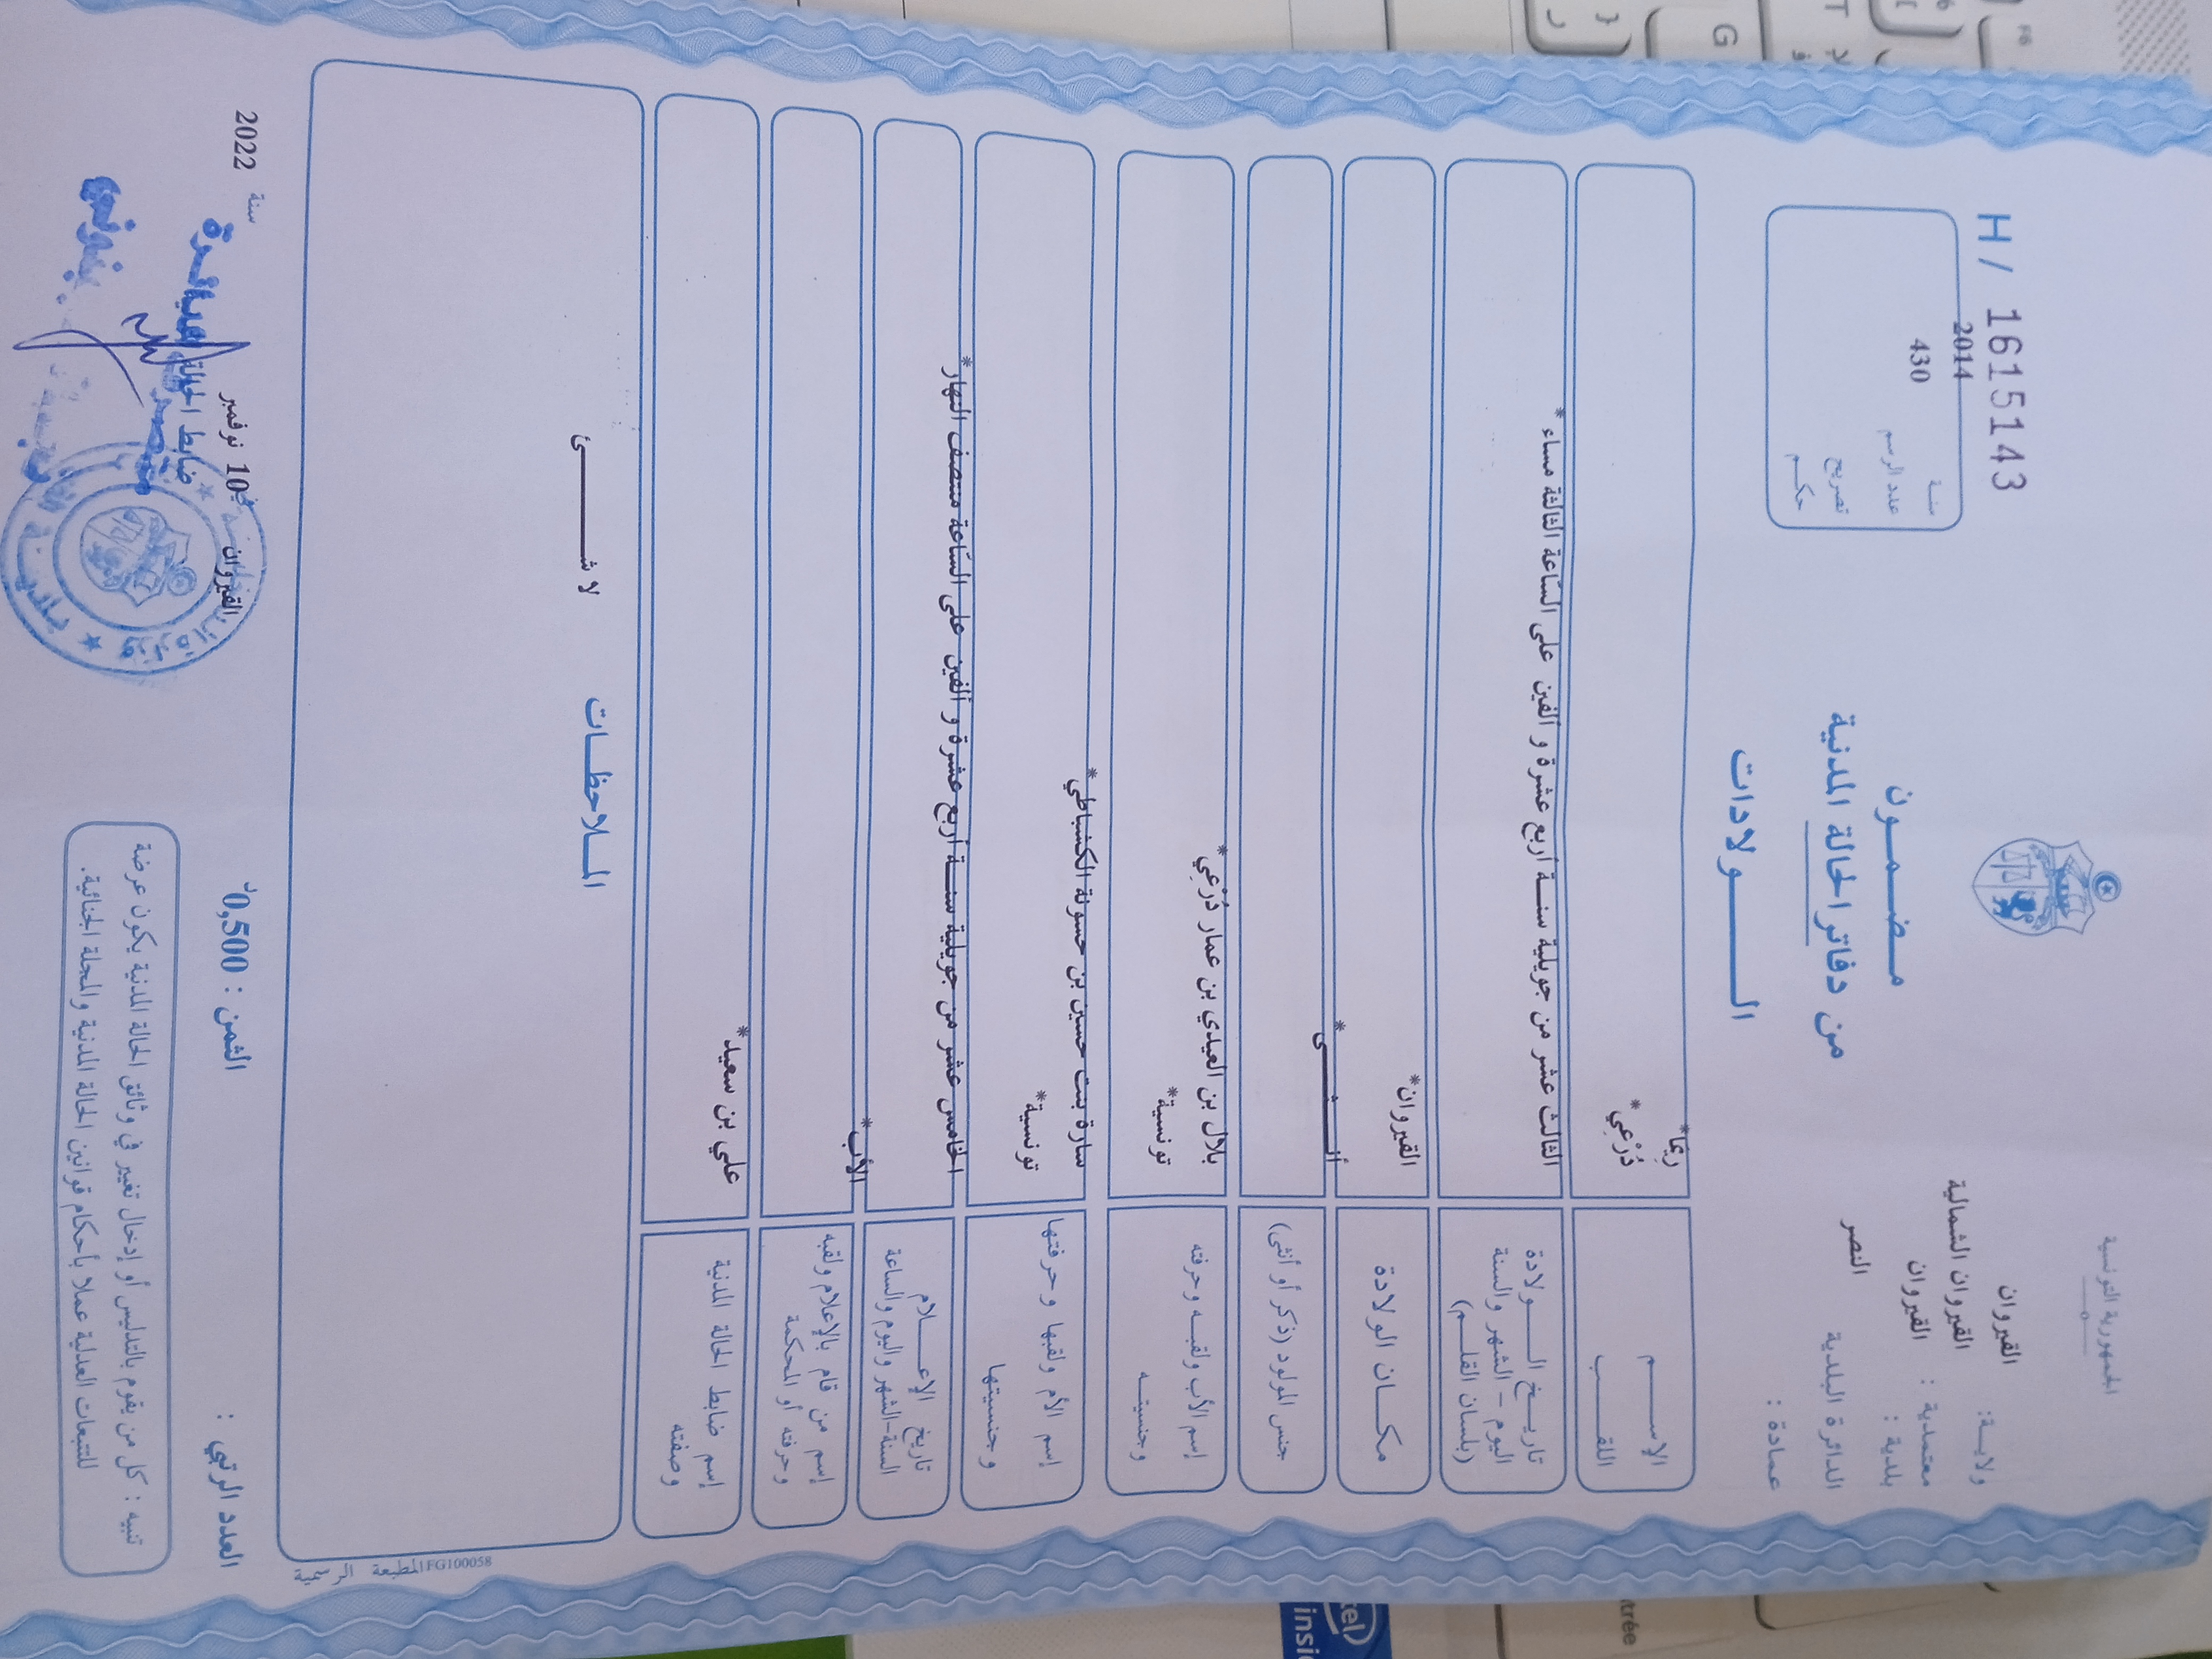 الجمهورية التونسية
ولايـة: القيروان
معتمدية : القيروان الشمالية
بلدية : القيروان
الدائرة البلدية النصر
عمادة :
H/ 1615143
سنـة 2014
عدد الرسم 430
تصريح
حكـم
مـضـمـون
من دفاتر الحالة المدنية
الـــولادات
الإســـم ريمَا*
اللقـــب دُرْعِي*
تاريــخ الـــولادة
اليوم – الشهر والسنة
(بلسان القلــم)
الثالث عشر من جويلية سنـــة أربع عشرة و ألفين على السّاعة الثالثة مساء *
مكـــان الولادة القيروان*
جنس المولود (ذكر أو أنثى) أنـــثـــى*
إسم الأب ولقبـه وحرفته
وجنسيتـــه
بلال بن العيدي بن عمار دُرْعِي*
تونسية*
إسم الأم ولقبها وحرفتها
وجنسيتها
سارة بنت حسين بن حسونة الكشباطي*
تونسية*
تاريخ الإعـــلام
السنة–الشهر واليوم والساعة
الخامس عشر من جويلية سنـــة أربع عشرة و ألفين على السّاعة منتصف النهار*
إسم من قام بالإعلام ولقبه
وحرفته أو المحكمة
الأب*
إسم ضابط الحالة المدنية
وصفته
علي بن سعيد*
المــلاحظــات
لا شـــــئ
المطبعة الرسمية IFG100058
العدد الرتبي :
الثمن : 0,500د
القيروان في 10 نوفمبر سنة 2022
ضابط الحالة المدنية
تنبيه : كل من يقوم بالتدليس أو إدخال تغيير في وثائق الحالة المدنية يكون عرضة
للتتبعات العدلية عملا بأحكام قوانين الحالة المدنية والمجلة الجنائية.
G
F6
6
T
intel
inside
trée